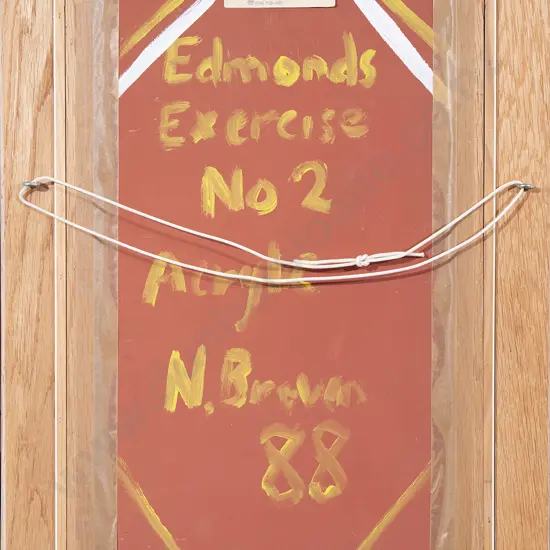 Edmonds
Exercise
No 2
Acrylic
N. Brown
88